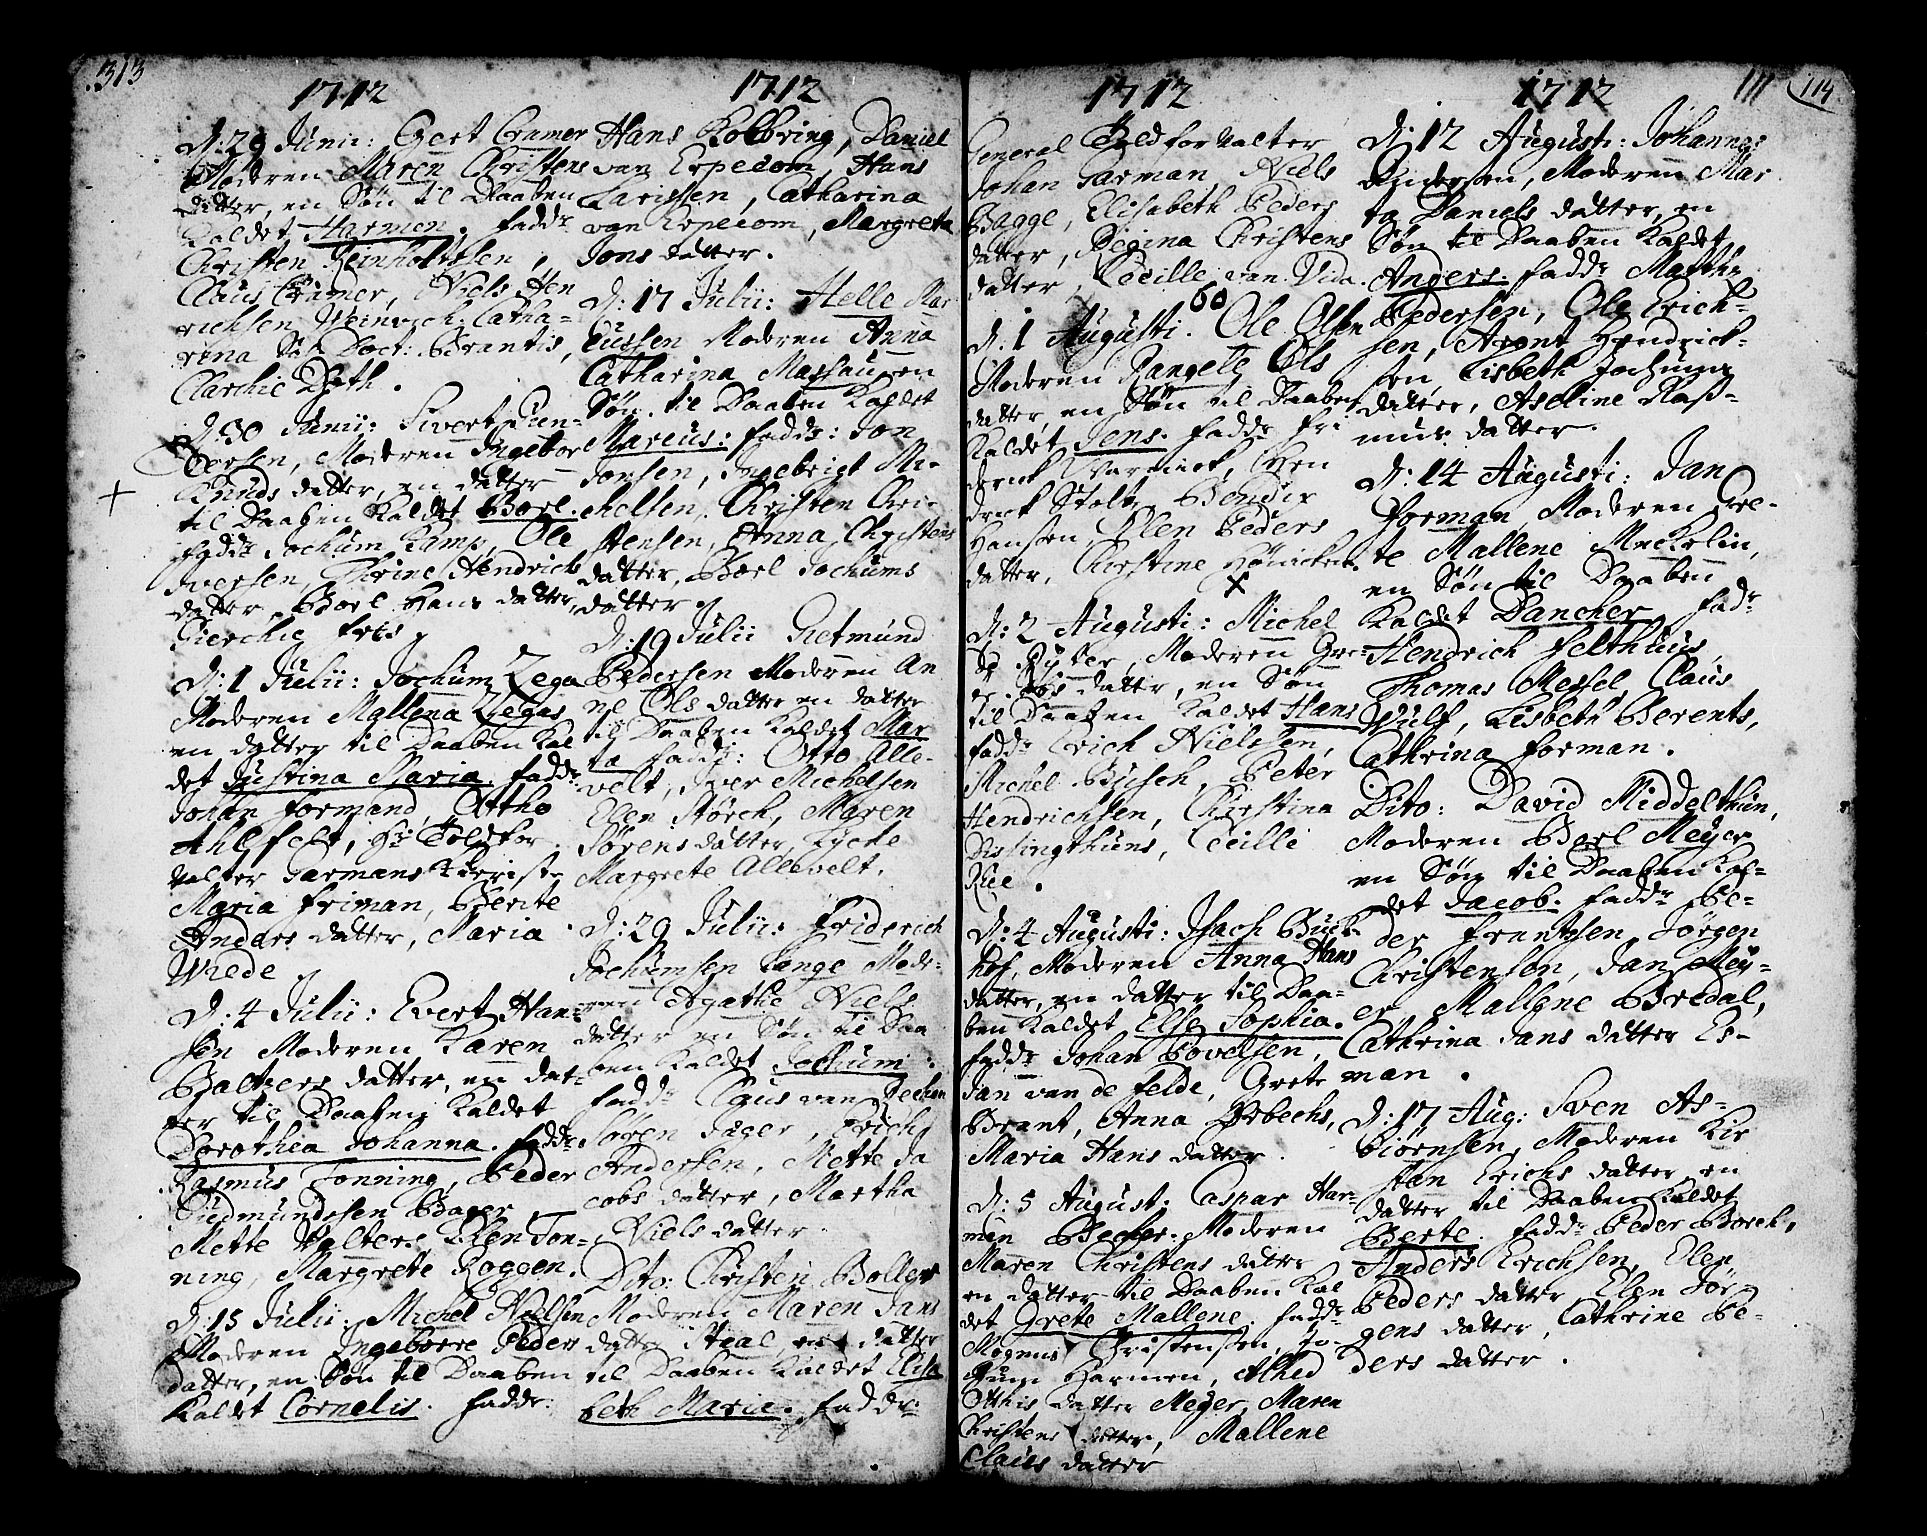 313
1712
D: 29 Junii: Gert Cramer
Moderen Maren Christens
datter, en Søn til Daaben
Kaldet Harmen. fadd:
Christen Reinholtssen,
Claus Cramer, Niels Hen
richsen Weinrich: Catha-
rina Sal: Doct: Brantis,
Clarchie Doth.
D: 30 Junii: Sivert
Moderen Ingebor
Knuds datter, en datter
til Daaben Kaldet Boel.
fadd: Jochum Kamp, Ole
Iversen, Thrine Hendrichs
datter Boel Hans datter,
Gierchie friis
D: 1 Julii: Jochum Zega
Moderen Mallena Zegas
en datter til Daaben Kal
det Justina Maria. fadd:
Johan Formand, Ottho
Ahlfelt, Hr: Toldfor
valter Garmans Kieriste
Maria friman, Berite
Anders datter, Maria
Wrede
D: 4 Julii: Evert Han-
sen Moderen Karen
Baltzers datter, en dat-
ter til Daaben Kaldet
Dorothea Johanna. fadd:
Rasmus Tonning, Peder
Gudmundssen Bager
Mette Valters Elen Ton-
ning, Margrete Roggen.
D: 15 Julii: Michel Nielsen
Moderen Ingeborre Peders
datter, en Søn til Daaben
Kaldet Cornelis. fadd:
1712
Hans Kolbring, Daniel
van Erpecom, Hans
Larissen, Catharina
van Erpecom, Margreta
Jons datter.
D: 17 Julii: Helle Mar
cussen Moderen Anna
Catharina Massau, en
Søn til Daaben Kaldet
Marcus: fadd: Jon
Jonsen, Ingebrigt Mi-
chelsen, Christen Chri-
stensen, Anna Christens
datter, Boel Jochums
datter
D: 19 Julii Gietmund
Pedersen Moderen An
ne Ols datter en datter
til Daaben Kaldet Mar
ta fadd: Otto Alle-
velt, Iver Michelsen
Elen Størck, Maren
Sørens datter, Lycke
Margrete Allevelt.
D: 29 Julii: Friderich
Jochumsen Lange Mode-
ren Agathe Niels
datter en Søn til Daa
ben Kaldet Jochum.
fadd: Claus van Decken
Søren Jager, Erich
Andersen, Mette Ja
cobs datter, Martha
Niels datter.
Dito: Christen Boller
Moderen Maren Jans
datter en datter
til Daaben Kaldet Elisa
beth Maria. fadd:
111 114
1712
General Toldforvalter
Johan Garman Niels
Bagge, Elisabeth Peders
datter, Regina Christens
datter, Cecille van Vida.
60
D: 1 Augusti. Ole Olsen
Moderen Rangele Ols
datter, en Søn til Daaben
Kaldet Jens. fadd: Fri
derick Warnick, Hen
drick Stolt, Bendix
Hansen, Elen Peders
datter, Christine Hønicken.
D: 2 Augusti: Michel
de Ryter, Moderen Gre-
datter, en Søn
til Daaben Kaldet Hans
fadd: Erich Nielssen,
Michel Busch, Peter
Hendrichsen, Christina
Distingthuns, Cecille
Rue.
D: 4 Augusti: Isach Buck
hof, Moderen Anna Hans
datter, en datter til Daa-
ben Kaldet Else Sophia.
fadd: Johan Povelsen,
Jan van de Felde, Grete
Brant, Anna Orbechs,
Maria Hans datter.
D: 5 August: Caspar Har-
men Becher. Moderen
Maren Christens datter
en datter til Daaben Kal
det Grete Mallene. fadd:
Mogens Christensen, Jo-
chum Harmen, Alhed
Otthis datter Meyer, Maren
Christens datter, Mallene
Claus datter
1712
D: 12 Augusti: Johannes
Andersen, Moderen Mar
ta Daniels datter, en
Søn til Daaben Kaldet
Anders: fadd: Matthi
Pedersen, Ole Erich-
sen, Arent Hendrick-
sen, Lisbeth Jochums
datter, Aseline Raß-
mus datter.
D: 14 Augusti: Jan
Forman, Moderen Gre-
te Mallene Meckelin,
en Søn til Daaben
Kaldet Dancher. fadd:
Hendrich Felthuus,
Thomas Messel, Claus
Wulf, Lisbeth Berents,
Cathrina Forman.
Dito: David Middelthun,
Moderen Boel Meyer
en Søn til Daaben Kal-
det Jacob. fadd: Pe-
der Frantssen, Jørgen
Christensen, Jan Mey-
er, Mallene Bredal,
Cathrina Jans datter Es-
man.
D: 17 Aug: Sven As-
biørnsen, Moderen Kir
stan Erichs datter, en
datter til Daaben Kaldet
Berte. fadd: Peder Borch,
Anders Erichsen, Elen
Peders datter, Elen Jør
gens datter, Cathrine Pe-
ders datter.